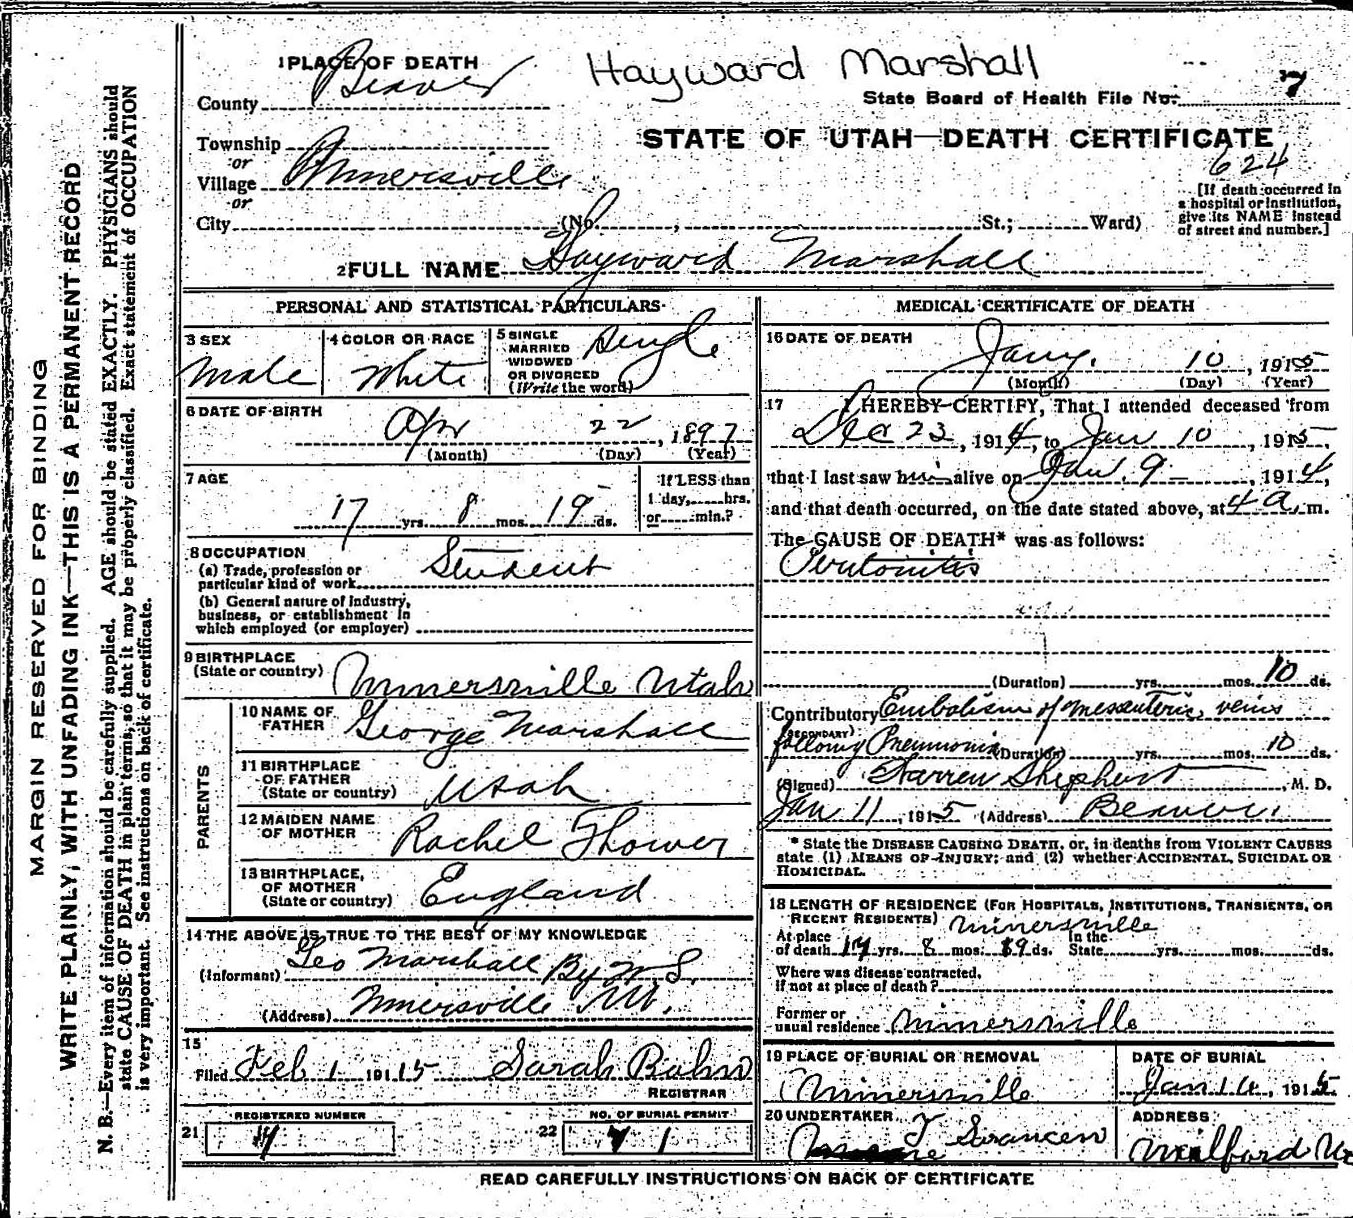 MARGIN RESERVED FOR BINDING
WRITE PLAINLY, WITH UNFADING INK—THIS IS A PERMANENT RECORD
N. B.—Every item of information should be carefully supplied. AGE should be stated EXACTLY. PHYSICIANS should
state CAUSE OF DEATH in plain terms, so that it may be properly classified. Exact statement of OCCUPATION
is very important. See instructions on back of certificate.
Hayward Marshall
1 PLACE OF DEATH
County Beaver
State Board of Health File No. 7
STATE OF UTAH—DEATH CERTIFICATE
624
Township
or
Village Minersville
or
City (No. , St.; Ward)
[If death occurred in
a hospital or institution,
give its NAME instead
of street and number.]
2 FULL NAME Hayward Marshall
PERSONAL AND STATISTICAL PARTICULARS
3 SEX
Male
4 COLOR OR RACE
White
5 SINGLE
MARRIED
WIDOWED
OR DIVORCED
(Write the word)
Single
6 DATE OF BIRTH
Apr 22, 1897
(Month) (Day) (Year)
7 AGE
17 yrs. 8 mos. 19 ds.
If LESS than
1 day, hrs.
or min.?
8 OCCUPATION
(a) Trade, profession or
particular kind of work Student
(b) General nature of industry,
business, or establishment in
which employed (or employer)
9 BIRTHPLACE
(State or country) Minersville Utah
PARENTS
10 NAME OF
FATHER George Marshall
11 BIRTHPLACE
OF FATHER
(State or country) Utah
12 MAIDEN NAME
OF MOTHER Rachel Thower
13 BIRTHPLACE,
OF MOTHER
(State or country) England
14 THE ABOVE IS TRUE TO THE BEST OF MY KNOWLEDGE
(Informant) Geo Marshall By W S.
(Address) Minersville Ut.
15
Filed Feb 1 1915 Sarah
REGISTRAR
REGISTERED NUMBER
21
NO. OF BURIAL PERMIT
22 1
MEDICAL CERTIFICATE OF DEATH
16 DATE OF DEATH
Jany. 10, 1915
(Month) (Day) (Year)
17 I HEREBY CERTIFY, That I attended deceased from
Dec 23, 1914, to Jan 10, 1915,
that I last saw him alive on Jan. 9 — , 1914,
and that death occurred, on the date stated above, at 4 a. m.
The CAUSE OF DEATH* was as follows:
Peritonitis
(Duration) yrs. mos. 10 ds.
Contributory Embolism of Messenteric veins
(SECONDARY)
following Pneumonia (Duration) yrs. mos. 10 ds.
(Signed) Warren Shepherd, M. D.
Jan 11, 1915 (Address) Beaver.
* State the DISEASE CAUSING DEATH, or, in deaths from VIOLENT CAUSES
state (1) MEANS OF INJURY; and (2) whether ACCIDENTAL, SUICIDAL OR
HOMICIDAL.
18 LENGTH OF RESIDENCE (FOR HOSPITALS, INSTITUTIONS, TRANSIENTS, OR
RECENT RESIDENTS) Minersville
At place
of death 17 yrs. 8 mos. 19 ds. In the
State yrs. mos. ds.
Where was disease contracted,
if not at place of death?
Former or
usual residence Minersville
19 PLACE OF BURIAL OR REMOVAL
Minersville
DATE OF BURIAL
Jan 1915
20 UNDERTAKER
T Sorancen
ADDRESS
Milford
READ CAREFULLY INSTRUCTIONS ON BACK OF CERTIFICATE